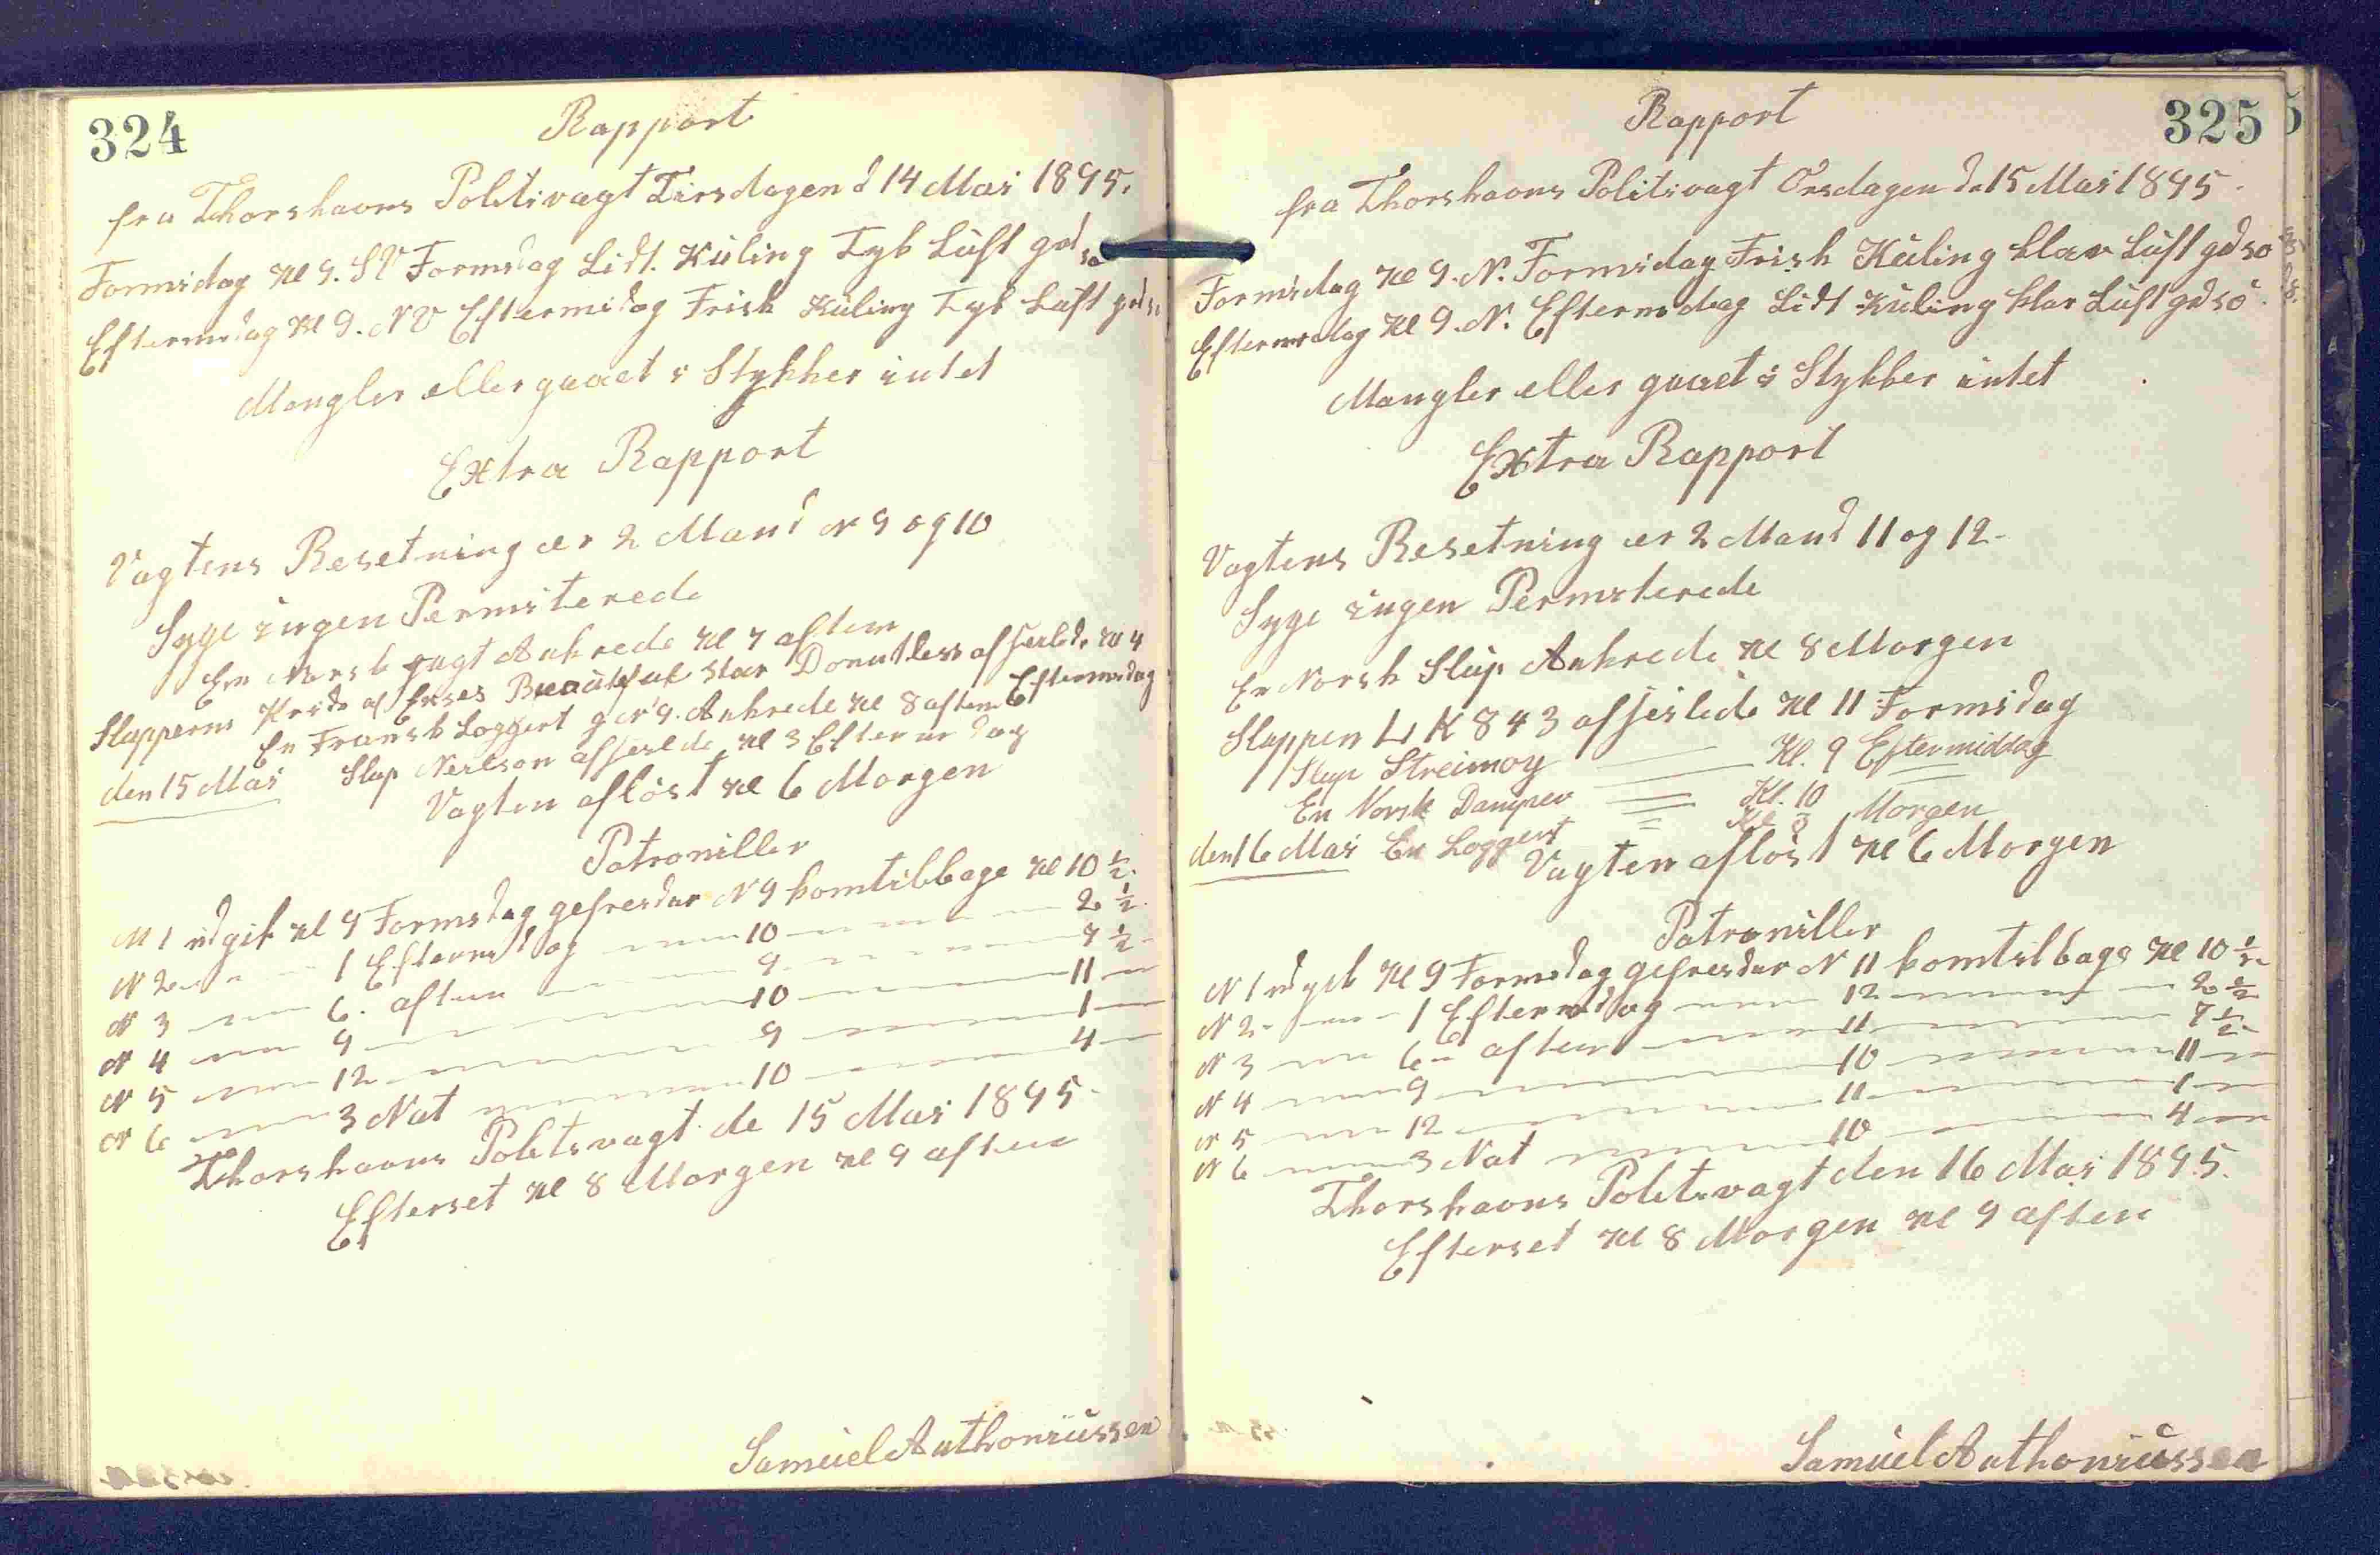 324
Rapport
fra Thorshavns Politivagt Tirsdagen d 14 Mai 1895.
Formidag Kl 9. SV Formidag Lidt. Kuling Tyk Luft gd so
Eftermidag Kl 9. NV Eftermidag Frisk Kuling Tyk Luft gd so
Mangler eller gaaet i Stykker intet
Extra Rapport
Vagtens Besetning er 2 Mand N 9 og 10
Syge ingen Permiterede
En Norsk Jagt Ankrede Kl 7 aften
Slupperne Beautiful Star afseilede Kl 4
Eftermidag
En Fransk Loggert Ankrede Kl 8 aften
den 15 Mai Slup afseilede Kl 3 Eftermidag
Vagten afløst Kl 6 Morgen
Patroniller
N 1 udgik Kl 9 Formidag gefreider N 9 kom tilbage Kl 10 1/2
N 2 1 Eftermidag 10 2 1/2
N 3 6. aften 9 7 1/2
N 4 9 10 11
N 5 12 9 1
N 6 3 Nat 10 4
Thorshavns Politivagt de 15 Mai 1895.
Efterset Kl 8 Morgen Kl 9 aften
Samuel Anthoniussen
325
Rapport
fra Thorshavns Politivagt Onsdagen d. 15 Mai 1895.
Formidag Kl 9. N. Formidag Frisk Kuling klar Luft gd so
Eftermidag Kl 9. N. Eftermidag Lidt Kuling klar Luft gd so.
Mangler eller gaaet i Stykker intet
Extra Rapport
Vagtens Besetning er 2 Mand 11 og 12.
Syge ingen Permiterede
En Norsk Slup Ankrede Kl 8 Morgen
Sluppen LK 843 afseilede Kl 11 Formidag
Slup Streimoy Kl. 9 Eftermiddag
En Norsk Damper Kl. 10
den 16 Mai En Loggert Kl 8 Morgen
Vagten afløst Kl 6 Morgen
Patroniller
N 1 udgik Kl 9 Formidag gefreider N 11 kom tilbage Kl 10 1/2
N 2 1 Eftermidag 12 2 1/2
N 3 6 aften 11 7 1/2
N 4 9 10 11
N 5 12 11 1
N 6 3 Nat 10 4
Thorshavns Politivagt den 16 Mai 1895.
Efterset Kl 8 Morgen Kl 9 aften
Samuel Anthoniussen